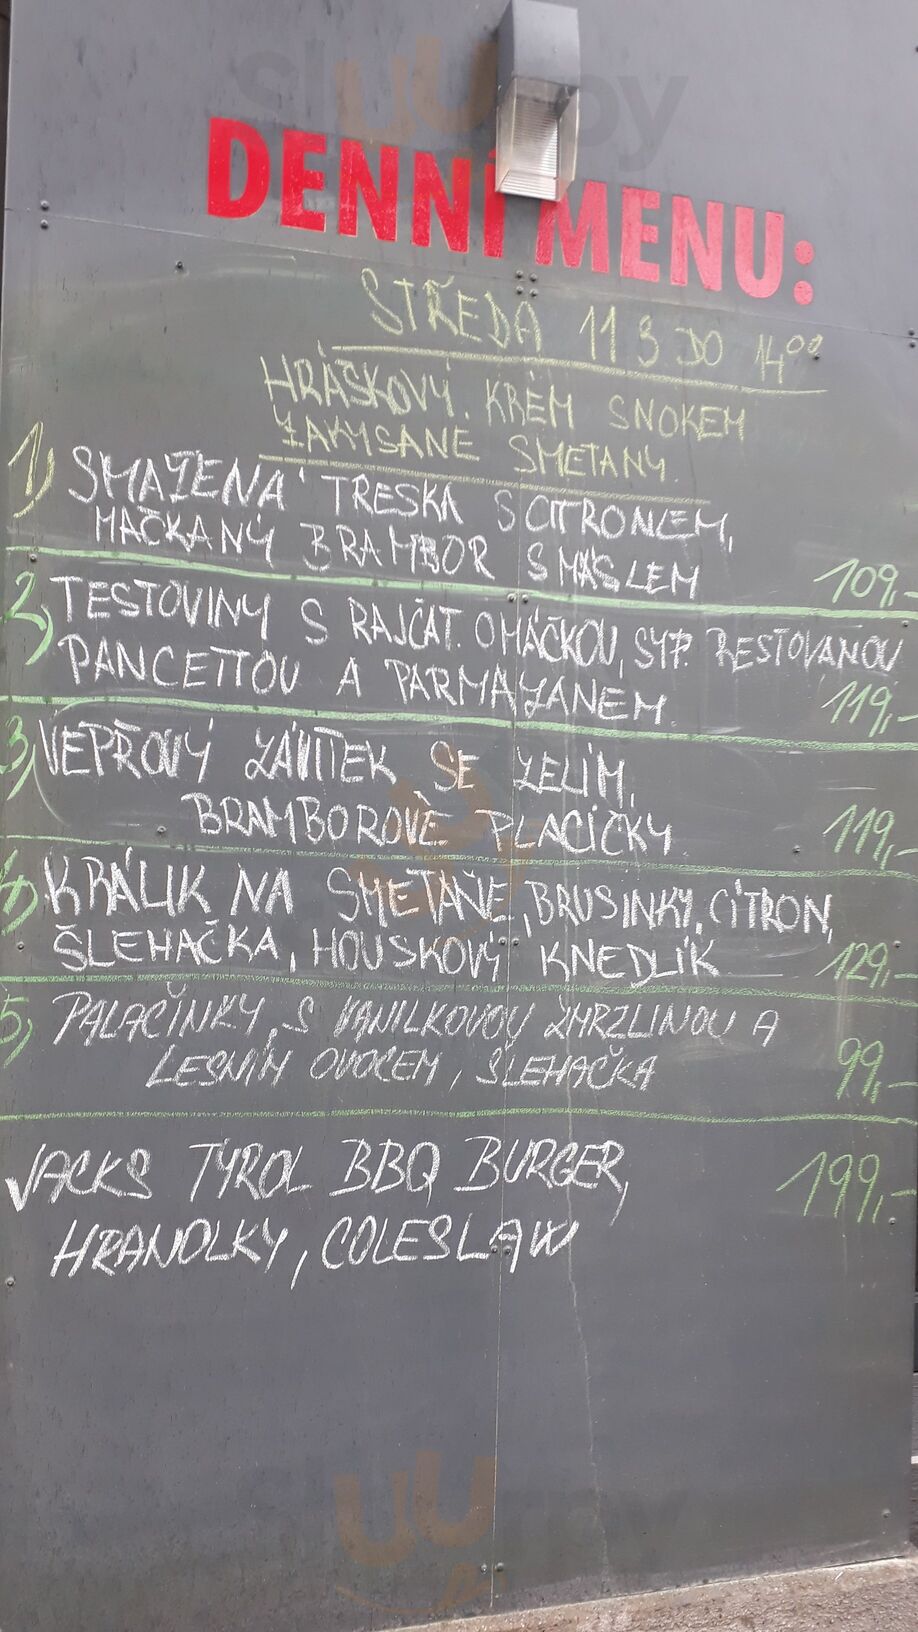 DENNÍ MENU:
STŘEDA 11 3 DO 14⁰⁰
HRÁŠKOVÝ KRÉM S NOKEM
ZAKYSANÉ SMETANY.
1) SMAŽENÁ TRESKA S CITRONEM,
MAČKANÝ BRAMBOR S MÁSLEM 109,-
2) TESTOVINY S RAJČAT. OMÁČKOU, SYP. RESTOVANOU
PANCETTOU A PARMAZANEM 119,-
3) VEPŘOVÝ ZÁVITEK SE ZELÍM,
BRAMBOROVÉ PLACIČKY 119,-
4) KRÁLIK NA SMETANĚ, BRUSINKY, CITRON,
ŠLEHAČKA, HOUSKOVÝ KNEDLÍK 129,-
5) PALAČINKY, S VANILKOVOU ZMRZLINOU A
LESNÍM OVOCEM, ŠLEHAČKA 99,-
JACKS TYROL BBQ BURGER, 199,-
HRANOLKY, COLESLAW